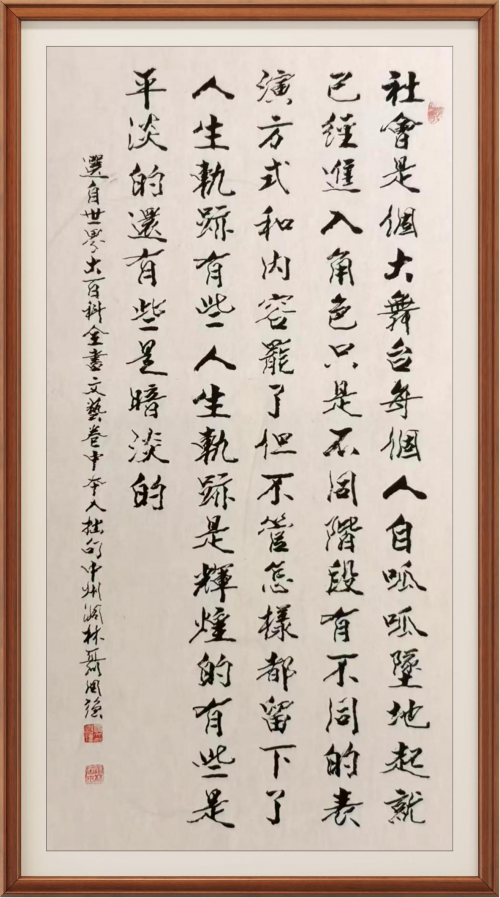 社會是個大舞台每個人自呱呱墜地起就
已經進入角色只是不同階段有不同的表
演方式和内容罷了但不管怎樣都留下了
人生軌跡有些人生軌跡是輝煌的有些是
平淡的還有些是暗淡的
選自世界大百科全書文藝卷中本人拙句中州